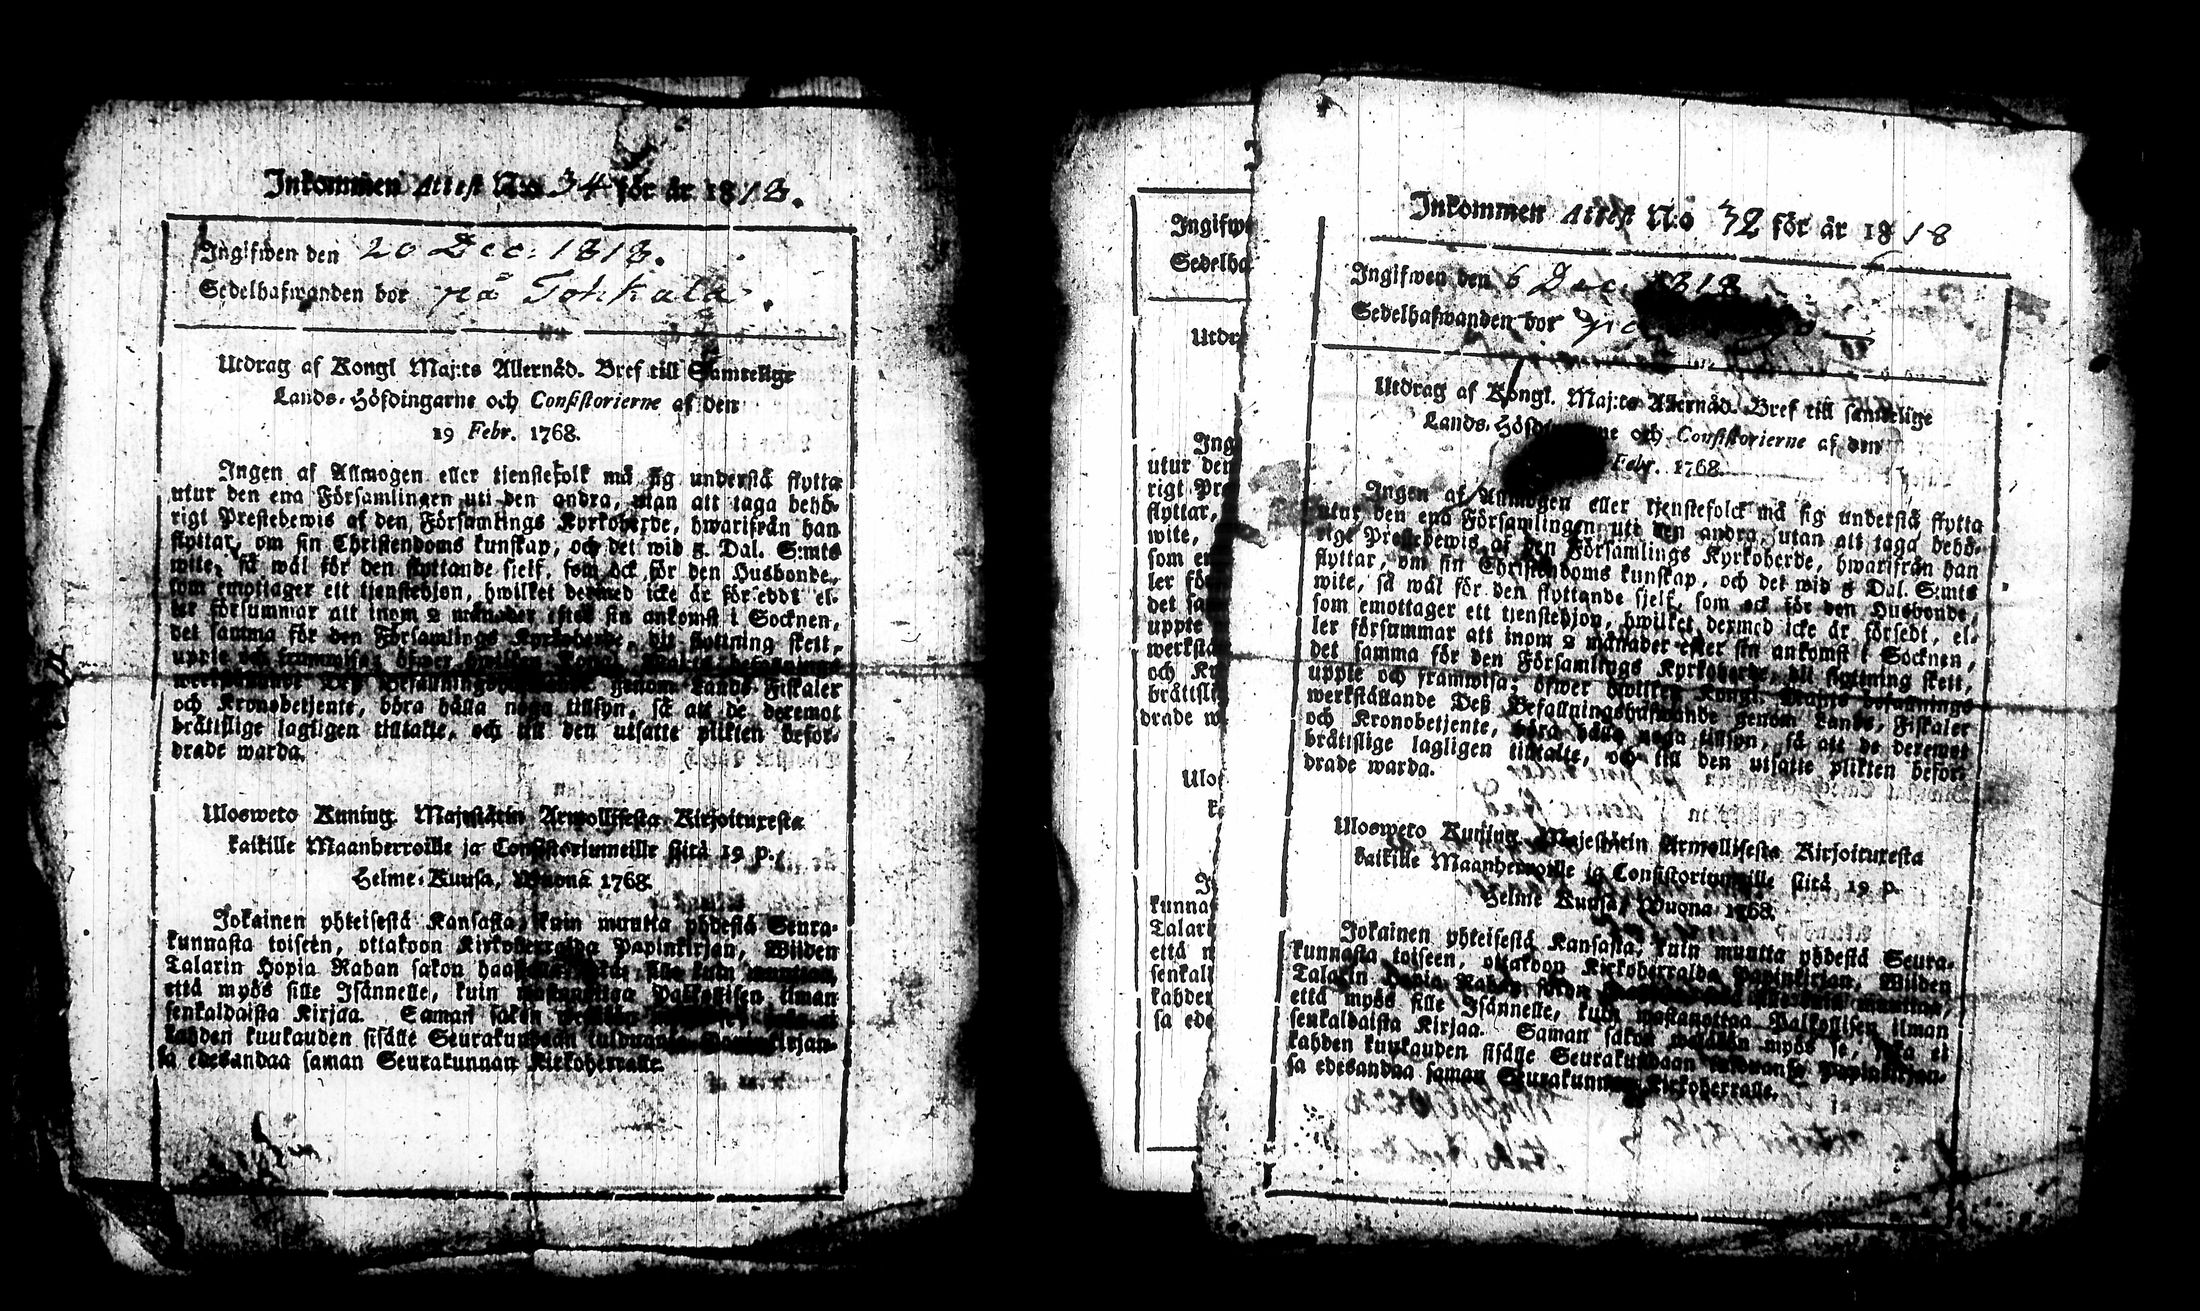 Inkommen Attest N:o 34 för år 1818.
Ingifwen den 20 Dec. 1818.
Sedelhafwanden bor på Tohkala.
Utdrag af Kongl Maj:ts Allernåd. Bref till Samtelige
Lands-Höfdingarne och Consistorierne af den
19 Febr. 1768.
Ingen af Allmogen eller tjenstefolk må sig understå flytta
utur den ena Församlingen uti den andra, utan att taga behö-
rigt Prestebewis af den Församlings Kyrkoherde, hwarifrån han
flyttar, om sin Christendoms kunskap, och det wid 5 Dal. S:mts
wite, så wäl för den flyttande sjelf, som ock för den Husbonde,
som emottager ett tjenstehjon, hwilket dermed icke är försedt el-
ler försummar att inom 2 månader efter sin ankomst i Socknen,
det samma för den Församlings Kyrkoherde, dit flyttning skett,
upte och framwisa; öfwer hwilket Kongl. Maj:ts befallnings
werkställande Deß Befallningshafwande genom Lands-Fiskaler
och Kronobetjente, böra hålla noga tillsyn, så att de deremot
bråttslige lagligen tilltalte, och till den utsatte plikten befor-
drade warda.
Uloswето Kuning. Majestätin Armollisesta Kirjoituxesta
kaikille Maanherroille ja Consistoriumeille siitä 19 p.
Helme-Kuusa, Wuona 1768.
Jokainen yhteisestä Kansasta, kuin muutta yhdestä Seura-
kunnasta toiseen, ottakoon Kirkoherralda Papinkirjan, Wiiden
Talarin Hopia Rahan sakon haastolla, sekä sille kuin muuttaa,
että myös sille Isännelle, kuin wastanottaa Palkollisen ilman
senkaldaista Kirjaa. Saman sakon wetäkön myös se, joka ei
kahden kuukauden sisälle Seurakundaan tulduansa Papinkirjan-
sa edesandaa saman Seurakunnan Kirkoherralle.
Ingifw
Sedelha
Utdr
Ing
utur den
rigt Pre
flyttar,
wite,
som em
ler för
det sam
uppte
werkstä
och Kr
bråttsli
drade w
Ulos
k
J
kunna
Talari
että m
senkal
kahden
sa ede
Inkommen Attest N:o 32 för år 1818
Ingifwen den 6 Dec. 1818
Sedelhafwanden bor på
Utdrag af Kongl. Maj:ts Allernåd. Bref till samtelige
Lands-Höfdingarne och Consistorierne af den
Febr. 1768.
Ingen af Allmogen eller tjenstefolck må sig understå flytta
utur den ena Församlingen uti den andra, utan att taga behö-
rigt Prestebewis af den Församlings Kyrkoherde, hwarifrån han
flyttar, om sin Christendoms kunskap, och det wid 5 Dal. S:mts
wite, så wäl för den flyttande sjelf, som ock för den Husbonde,
som emottager ett tjenstehjon, hwilket dermed icke är försedt, el-
ler försummar att inom 2 månader efter sin ankomst i Socknen,
det samma för den Församlings Kyrkoherde, dit flyttning skett,
uppte och framwisa; öfwer hwilket Kongl. Maj:ts befallnings
werkställande Deß Befallningshafwande genom Lands-Fiskaler
och Kronobetjente, böra hålla noga tillsyn, så att de deremot
bråttslige lagligen tilltalte, och till den utsatte plikten befor-
drade warda.
Uloswето Kuning. Majestätin Armollisesta Kirjoituxesta
kaikille Maanherroille ja Consistoriumeille siitä 19 p.
Helme Kuusa, Wuona 1768.
Jokainen yhteisestä Kansasta, kuin muutta yhdestä Seura-
kunnasta toiseen, ottakoon Kirkoherralda Papinkirjan, Wiiden
Talarin Hopia Rahan sakon sille kuin muuttaa,
että myös sille Isännelle, kuin wastanottaa Palkollisen ilman
senkaldaista Kirjaa. Saman sakon wetäkön myös se, joka ei
kahden kuukauden sisälle Seurakundaan tulduansa Papinkirjan-
sa edesandaa saman Seurakunnan Kirkoherralle.